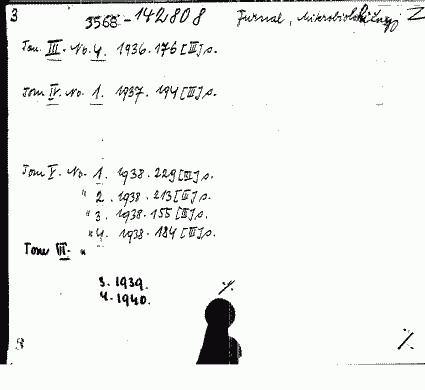 3 3568-142808 Žurnal, Mikrobiolohičnyj Z
Tom III. No. 4. 1936. 176 [III] s.
Tom IV. No. 1. 1937. 194 [II] s.
Tom V. No. 1. 1938. 229 [III] s.
" 2. 1938. 213 [II] s.
" 3. 1938. 155 [II] s.
" 4. 1938. 184 [II] s.
Tom VII. "
3. 1939.
4. 1940.